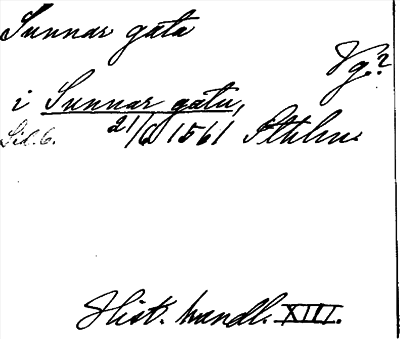 Sunnar gata
Vg.?
i Sunnar gatu,
Sid. 6. 21/6 1561 Sthlm.
Hist. handl. XIII.